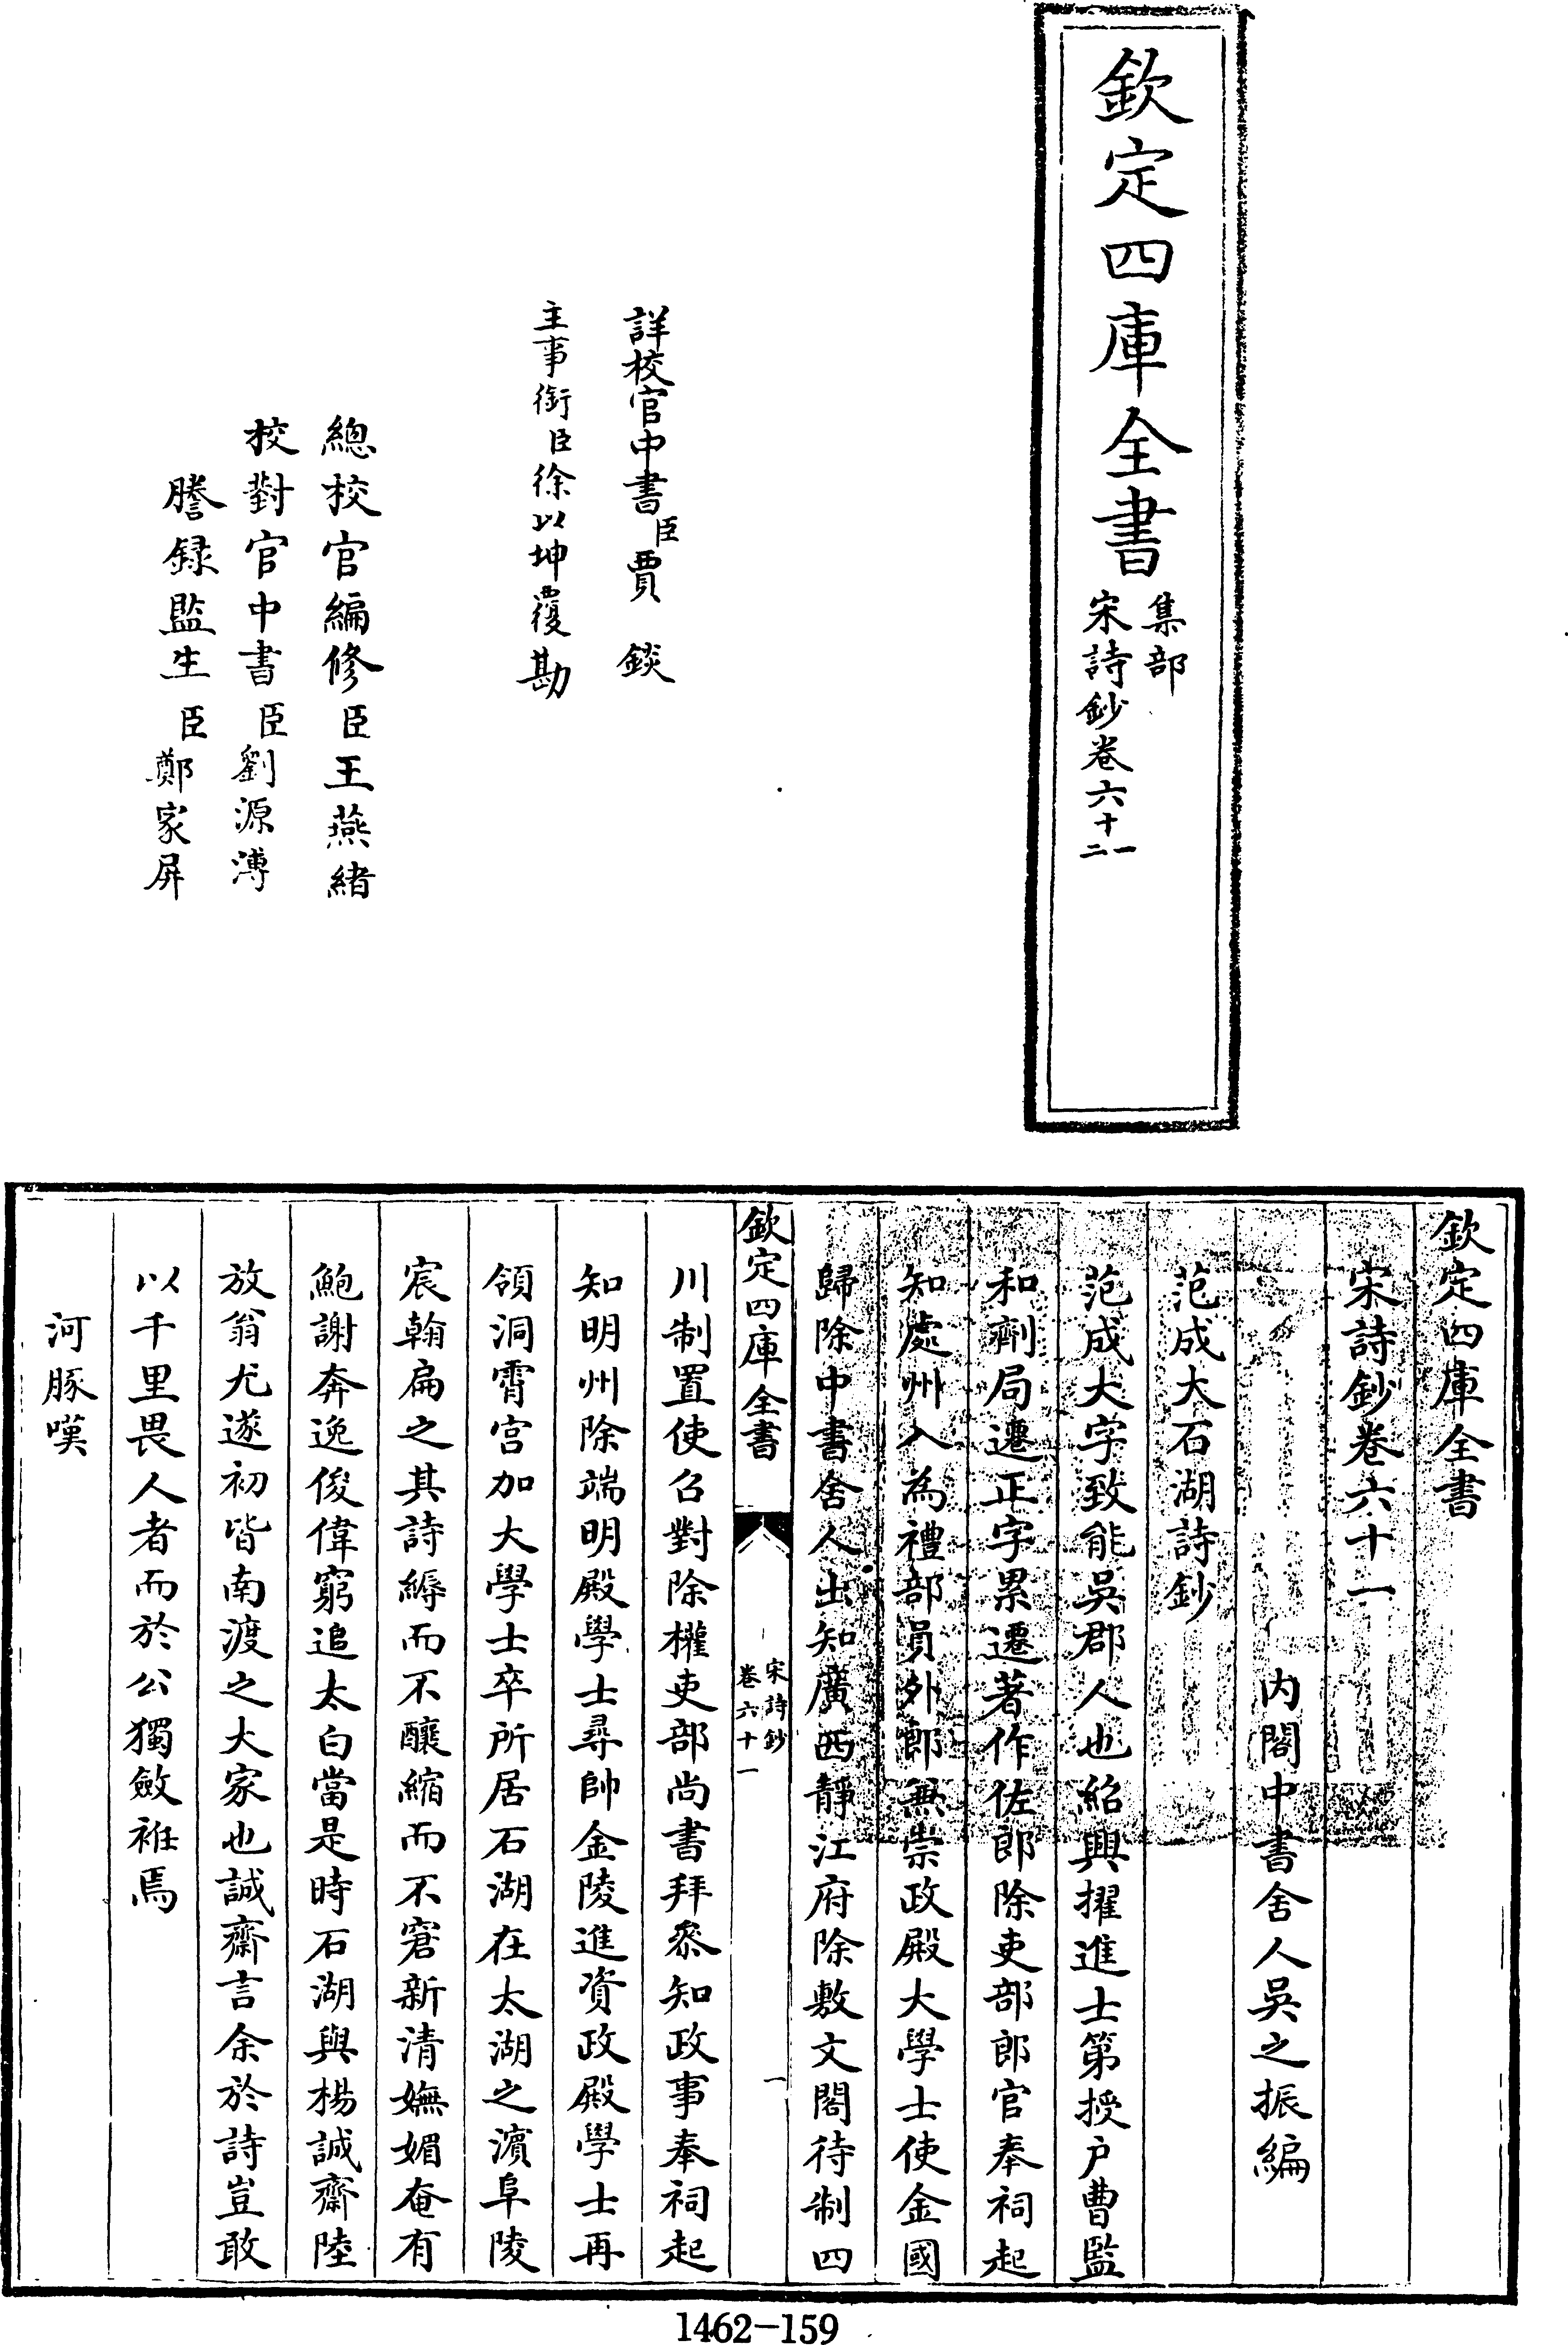 欽定四庫全書
集部
宋詩鈔卷六十一
二
詳校官中書臣賈錟
主事銜臣徐以坤覆勘
總校官編修臣王燕緒
校對官中書臣劉源溥
謄録監生臣鄭家屏
欽定四庫全書
宋詩鈔卷六十一
内閣中書舍人吳之振編
范成大石湖詩鈔
范成大字致能吳郡人也紹興擢進士第授户曹監
和劑局遷正字累遷著作佐郎除吏部郎官奉祠起
知處州入為禮部員外郎兼崇政殿大學士使金國
歸除中書舍人出知廣西靜江府除敷文閣待制四
欽定四庫全書
宋詩鈔
卷六十一
一
川制置使召對除權吏部尚書拜叅知政事奉祠起
知明州除端明殿學士尋帥金陵進資政殿學士再
領洞霄宫加大學士卒所居石湖在太湖之濱阜陵
宸翰扁之其詩縟而不釀縮而不窘新清嫵媚奄有
鮑謝奔逸俊偉窮追太白當是時石湖與楊誠齋陸
放翁尤遂初皆南渡之大家也誠齋言余於詩豈敢
以千里畏人者而於公獨斂袵焉
河豚嘆
1462-159